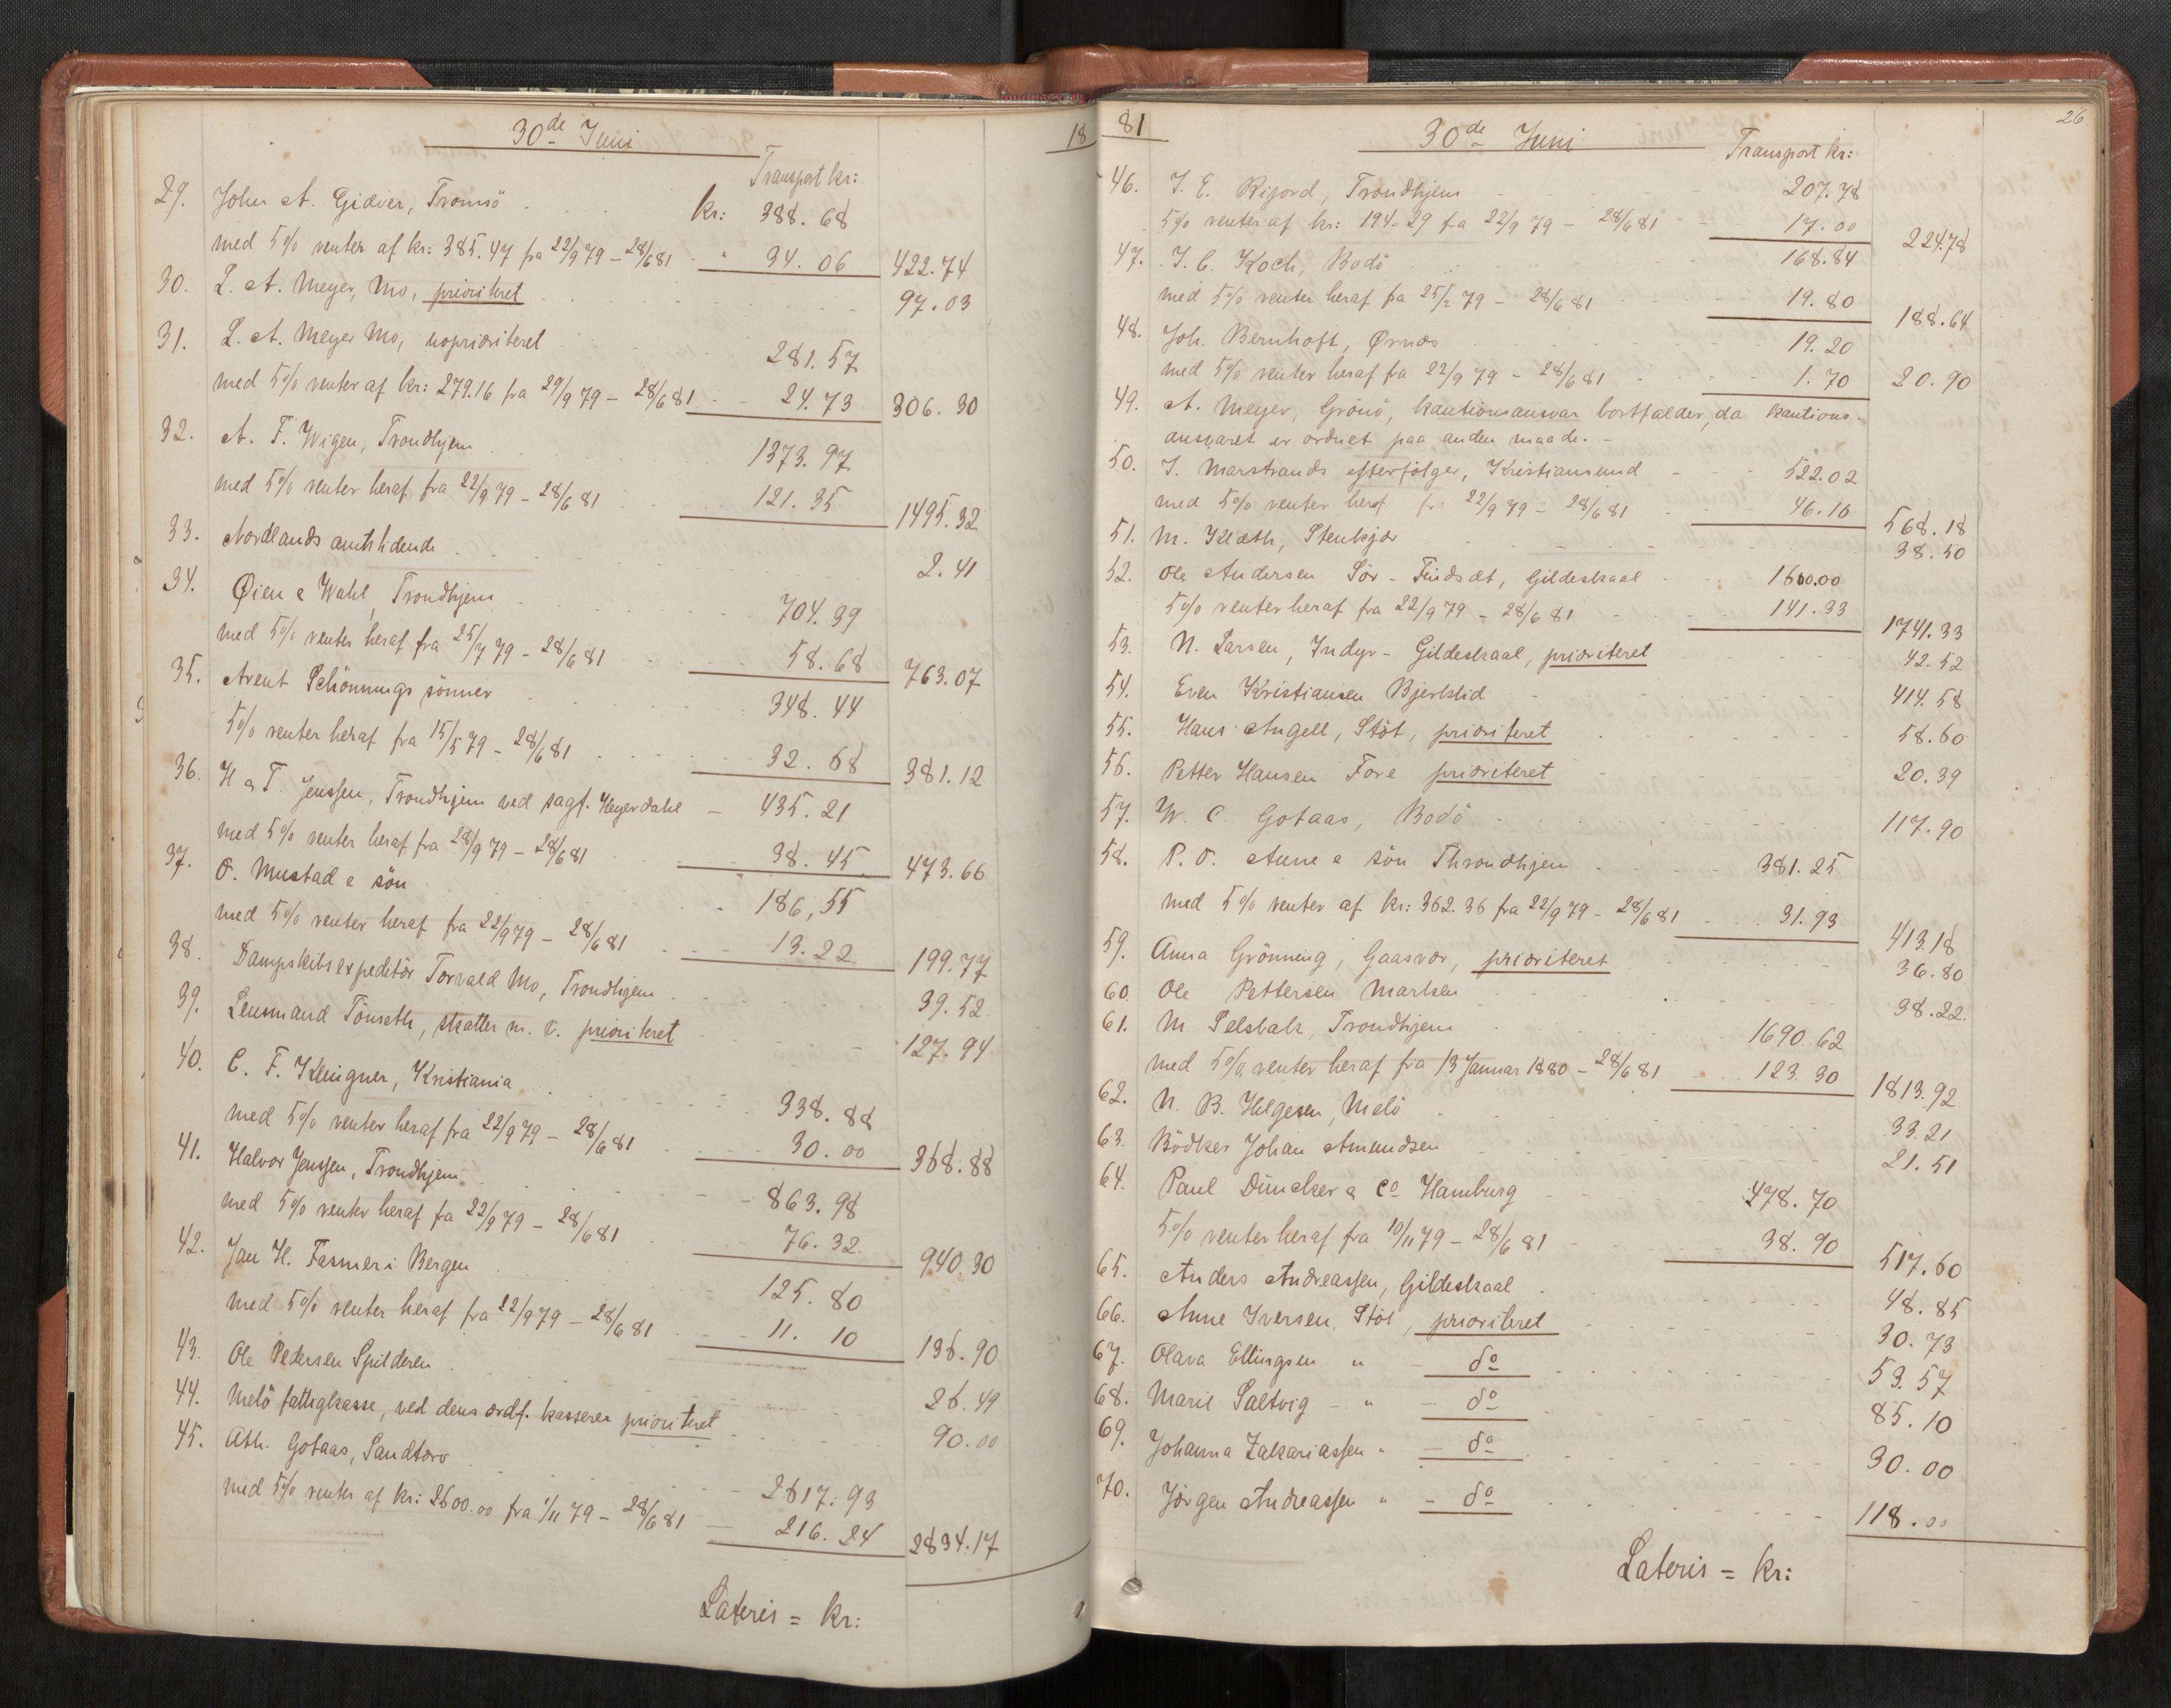 30de Juni
18
Transport kr:
29. John A. Giæver, Tromsö kr: 388.68
med 5% renter af kr: 385.47 fra 22/9 79 – 28/6 81 " 34.06 422.74
30. L. A. Meyer, Mo, prioriteret 97.03
31. L. A. Meyer Mo, uoprioriteret 281.57
med 5% renter af kr: 279.16 fra 29/9 79 – 28/6 81 24.73 306.30
32. A. F. Wigen, Trondhjem 1373.97
med 5% renter heraf fra 22/9 79 – 28/6 81 121.35 1495.32
33. Nordlands amtstidende 2.41
34. Øien & Wahl, Trondhjem 704.39
med 5% renter heraf fra 25/7 79 – 28/6 81 58.68 763.07
35. Arent Schönnings sönner 348.44
5% renter heraf fra 15/5 79 – 28/6 81 32.68 381.12
36. H & T. Jenssen, Trondhjem ved sagf. Heyerdahl – 435.21
med 5% renter heraf fra 28/9 79 – 28/6 81 38.45 473.66
37. O. Mustad & sön 186,55
med 5% renter heraf fra 22/9 79 – 28/6 81 13.22 199.77
38. Dampskibsexpeditör Torvald Mo, Trondhjem 39.52
39. Lensmand Tönseth, skatter m. v. prioriteret 127.94
40. C. F. Klingner, Kristiania 338.88
med 5% renter heraf fra 22/9 79 – 28/6 81 30.00 368.88
41. Halvor Jenssen, Trondhjem 863.98
med 5% renter heraf fra 22/9 79 – 28/6 81 76.32 940.30
42. Jan H. Fasmer i Bergen 125.80
med 5% renter heraf fra 22/9 79 – 28/6 81 11.10 136.90
43. Ole Pedersen Spilderen 26.49
44. Melö fattigkasse, ved dens ordf. kasserer prioriteret 90.00
45. Ath. Gotaas, Sandtorv 2617.93
med 5% renter af kr: 2600.00 fra 1/11 79 – 28/6 81 216.24 2834.17
Lateris = kr:
81
30de Juni
26
Transport kr:
46. J. E. Rijord, Trondhjem 207.78
5% renter af kr: 194.29 fra 22/9 79 – 28/6 81 17.00 224.78
47. J. C. Koch, Bodö 168.84
med 5% renter heraf fra 25/2 79 – 28/6 81 19.80 188.64
48. Joh. Bernhoft, Ørnæs 19.20
med 5% renter heraf fra 22/9 79 – 28/6 81 1.70 20.90
49. A. Meyer, Grönö, kautionsansvar bortfalder, da kautions-
ansvaret er ordnet paa anden maade. –
50. J. Marstrands efterfölger, Kristiansund 522.02
med 5% renter heraf fra 22/9 79 – 28/6 81 46.16 568.18
51. M. Klæth, Stenkjær 38.50
52. Ole Andersen Sör-Findsæt, Gildeskaal 1600.00
5% renter heraf fra 22/9 79 – 28/6 81 141.33 1741.33
53. N. Larsen, Indyr – Gildeskaal, prioriteret 42.52
54. Even Kristiansen Bjerklid 414.58
55. Hans Angell, Stöt, prioriteret 58.60
56. Petter Hansen Fore prioriteret 20.39
57. W. C. Gotaas, Bodö 117.90
58. P. O. Aune & sön Throndhjem 381.25
med 5% renter af kr: 362.36 fra 22/9 79 – 28/6 81 31.93 413.18
59. Anna Grönning, Gaasvær, prioriteret 36.80
60. Ole Pettersen Marken 38.22
61. M. Selsbak, Trondhjem 1690.62
med 5% renter heraf fra 13 Januar 1880 – 28/6 81 123.30 1813.92
62. N. B. Helgesen, Melö 33.21
63. Bödker Johan Amundsen 21.51
64. Paul Düncker & Co Hamburg 478.70
5% renter heraf fra 10/11 79 – 28/6 81 38.90 517.60
65. Anders Andreassen, Gildeskaal 48.85
66. Anne Iversen, Stöt, prioriteret 30.73
67. Olava Ellingsen " – do 53.57
68. Marie Saltvig – " – do 85.10
69. Johanna Zakariassen " – do 30.00
70. Jörgen Andreassen " – do 118.00
Lateris = kr: